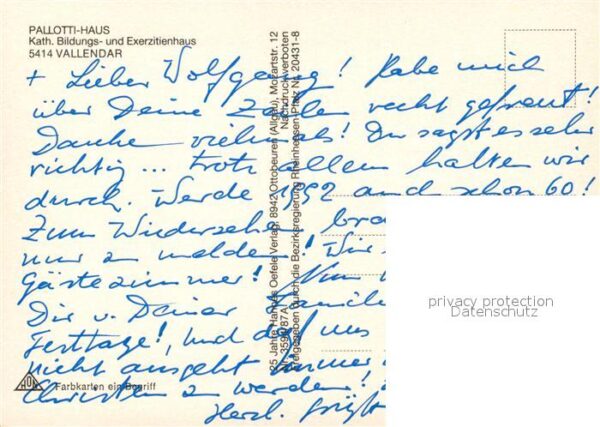 PALLOTTI-HAUS
Kath. Bildungs- und Exerzitienhaus
5414 VALLENDAR
+ Lieber Wolfgang! Habe mich
über Deine Zeilen recht gefreut!
Danke vielmals! Du sagst es sehr
richtig... trotz allem halten wir
durch. Werde 1992 auch schon 60!
Zum Wiedersehen
nur zu melden! Wir
Gästezimmer! Nun
Dir u. Deiner Familie
Festtage!, und daß uns
nicht ausgeht immer
Christen zu werden!
Herzl. grüßt
25 Jahre Hannes Oefele Verlag, 8942 Ottobeuren (Allgäu), Mozartstr. 12
Nachdruck verboten
Freigegeben durch die Bezirksregierung Rheinhessen-Pfalz Nr. 20431-8
privacy protection
Datenschutz
HOV
Farbkarten ein Begriff